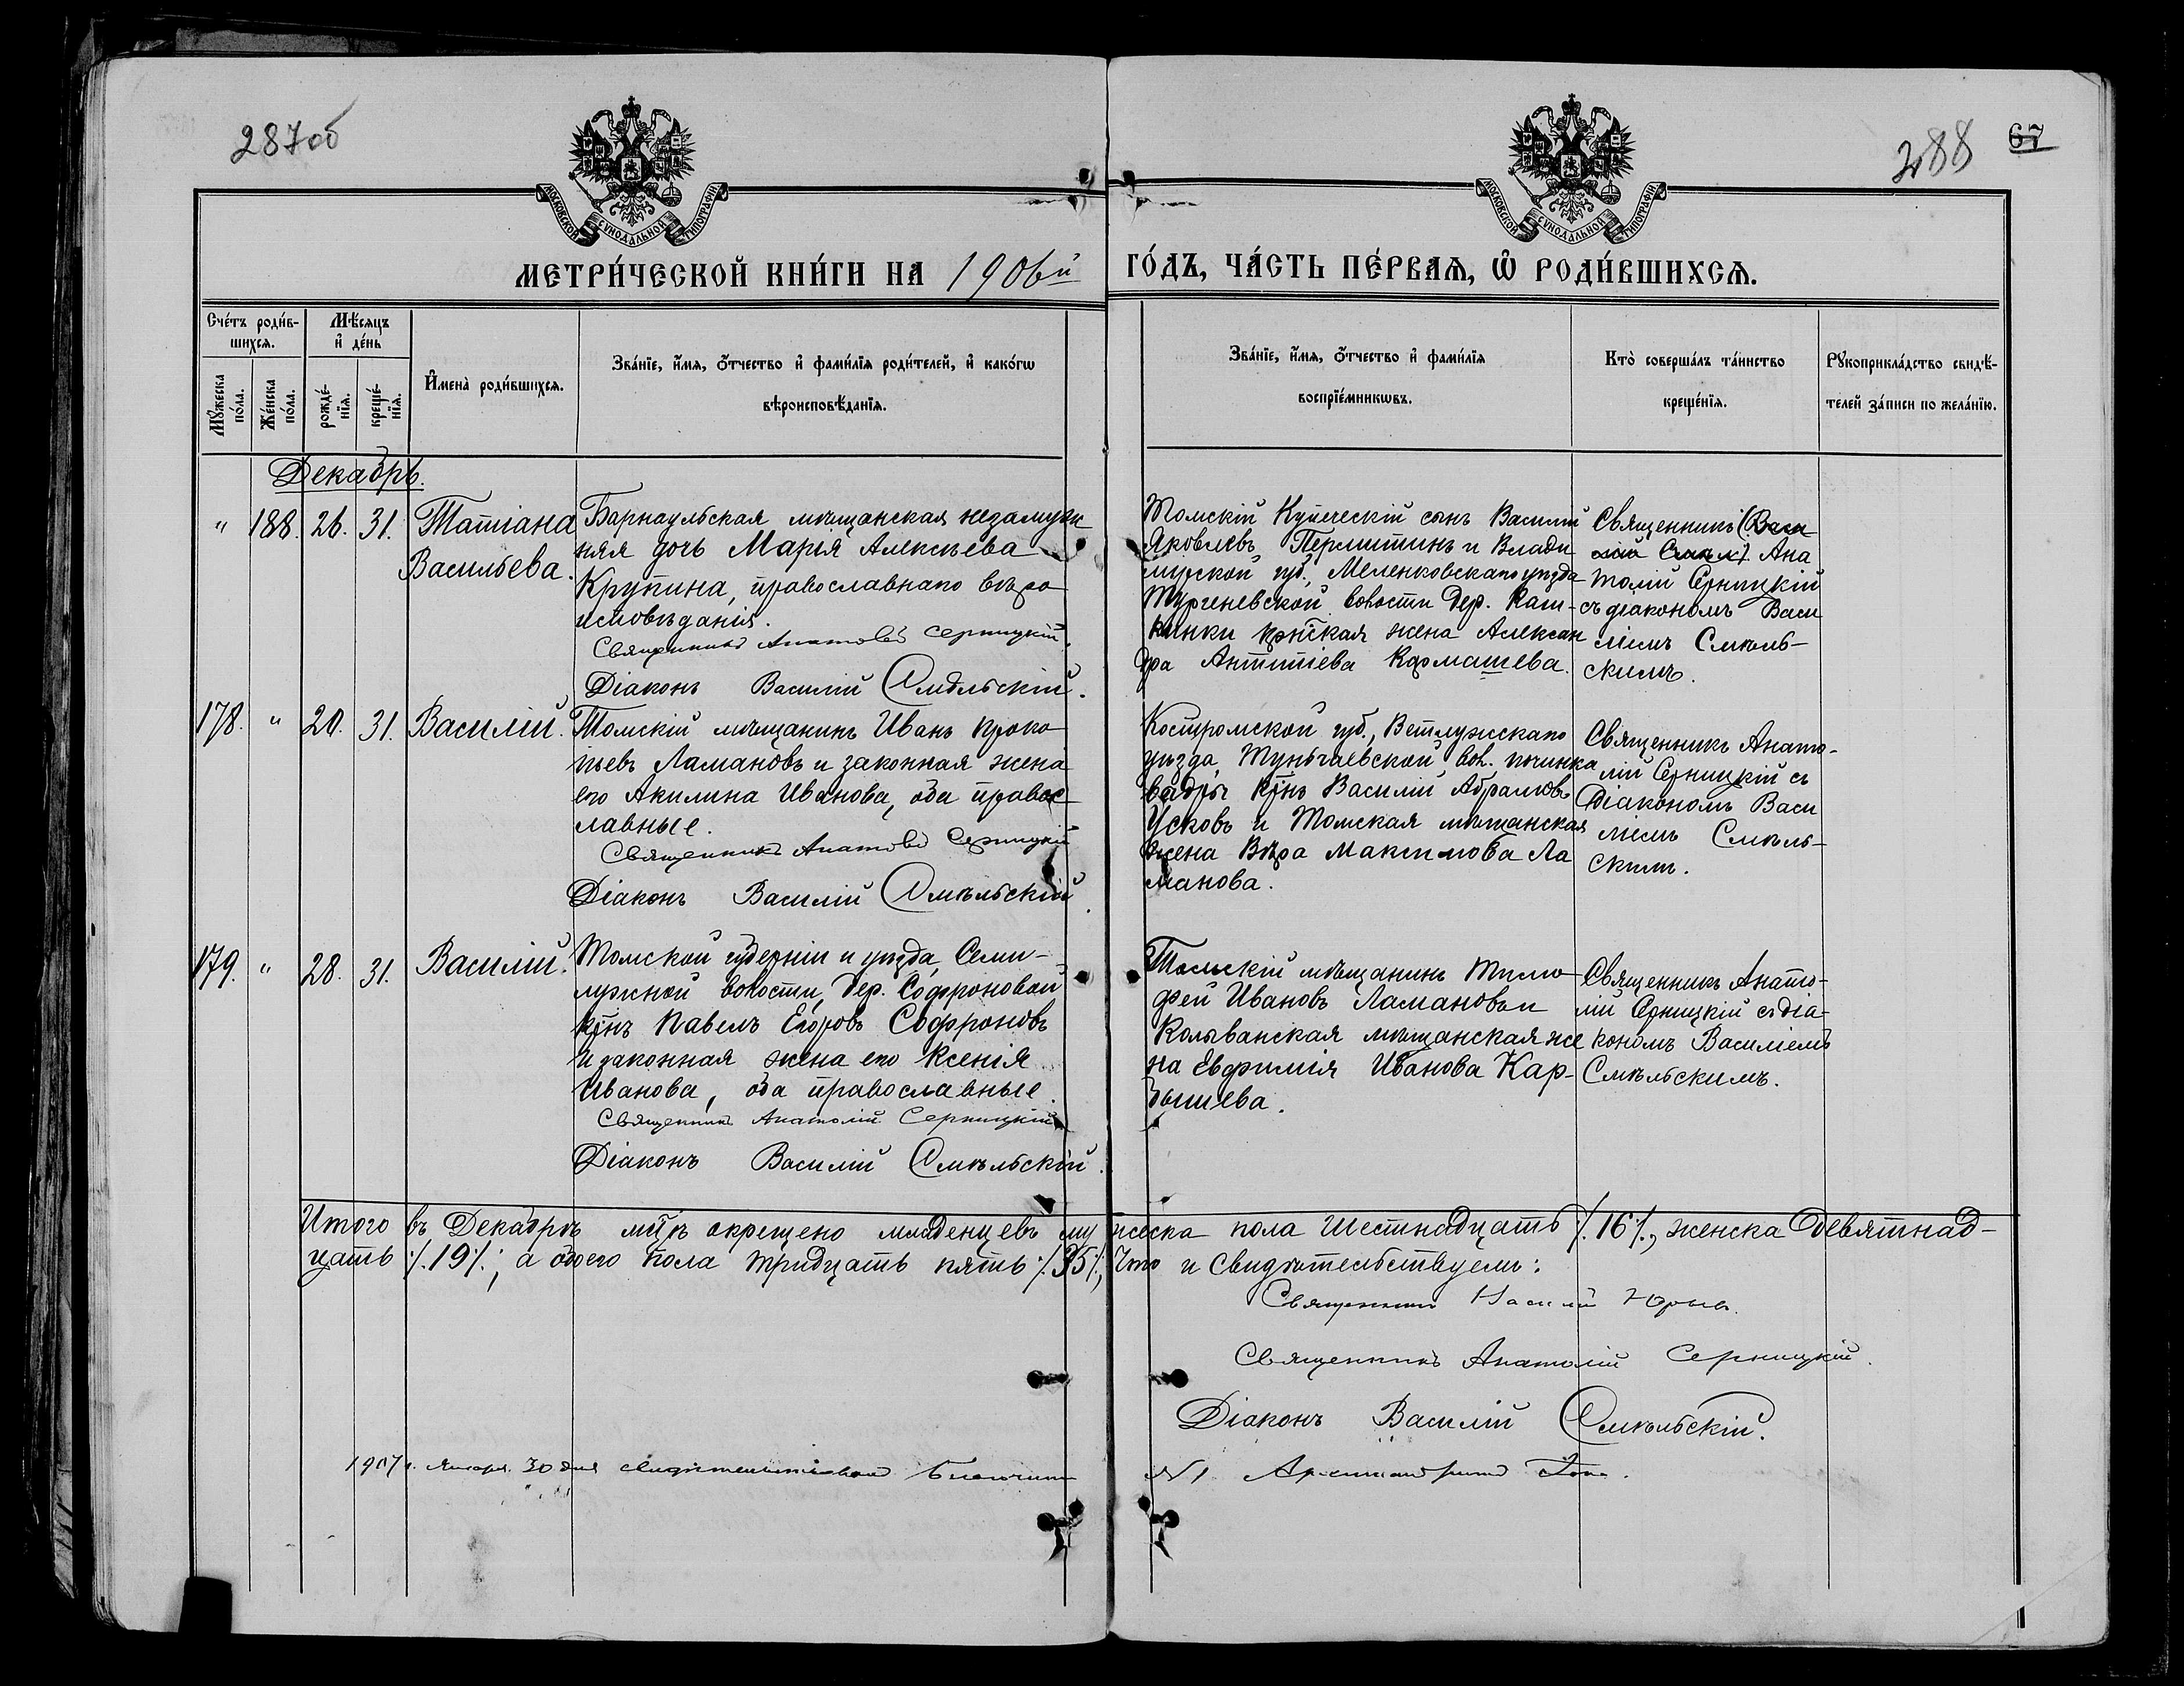 287об
288 67
МОСКОВСКОЙ СѴНОДАЛЬНОЙ ТИПОГРАФІИ
МОСКОВСКОЙ СѴНОДАЛЬНОЙ ТИПОГРАФІИ
МЕТРИ́ЧЕСКОЙ КНИ́ГИ НА 1906й ГО́ДЪ, ЧА́СТЬ ПЕ́РВАѦ, Ѽ РОДИ́ВШИХСѦ.
Сче́тъ роди́в-
шихсѧ.
Мѣ́сяцъ
и҆ де́нь
Мꙋ́жеска
по́ла.
Же́нска
по́ла.
рожде́-
нїѧ.
креще́-
нїѧ.
И҆мена̀ роди́вшихсѧ.
Зва́нїе, и҆́мѧ, ѻ҆́тчество и҆ фами́лїѧ роди́телей, и҆ како́гѡ
вѣроисповѣ́данїѧ.
Зва́нїе, и҆́мѧ, ѻ҆́тчество и҆ фами́лїѧ
воспрїе́мникѡвъ.
Кто̀ соверша́лъ та́инство
креще́нїѧ.
Рꙋкоприкла́дство свидѣ́-
телей за́писи по жела́нїю.
Декабрь.
" 188. 26. 31. Татіана
Васильева.
Барнаульская мѣщанская незамуж
няя дочь Марія Алексѣева
Крупина, православнаго вѣро
исповѣданія.
Священникъ Анатолій Серницкій.
Діаконъ Василій Смѣльскій.
Томскій Купеческій сынъ Василій
Яковлевъ Пермитинъ и Влади
мірской губ., Меленковскаго уѣзда
Тургеневской волости Дер. Каш-
кинки крест҃ская жена Алексан
дра Антипіева Кармашева.
Священникъ (Васи
лій Смѣл) Ана
толій Серницкій
съ діакономъ Васи
ліемъ Смѣль-
скимъ.
178. " 20. 31. Василій.
Томскій мѣщанинъ Иванъ Проко
пьевъ Ламановъ и законная жена
его Акилина Иванова, оба правос
лавные.
Священникъ Анатолій Серницкій
Діаконъ Василій Смѣльскій.
Костромской губ., Ветлужскаго
уѣзда, вол. починка
кр҃нъ Василій Абрамовъ
Усковъ и Томская мѣщанская
жена Вѣра Максимова Ла
манова.
Священникъ Анато-
лій Серницкій съ
Діакономъ Васи
ліемъ Смѣль-
скимъ.
179. " 28. 31. Василій.
Томской губерніи и уѣзда, Семи-
лужной волости, Дер. Софроновой
кр҃нъ Павелъ Егоровъ Софроновъ
и законная жена его Ксенія
Иванова, оба православные.
Священникъ Анатолій Серницкій
Діаконъ Василій Смѣльскій.
Томскій мѣщанинъ Тимо
фей Ивановъ Ламановъ и
Колыванская мѣщанская же
на Евфимія Иванова Кар-
бышева.
Священникъ Анато-
лій Серницкій съ діа-
кономъ Василіемъ
Смѣльскимъ.
Итого въ Декабрѣ мцѣ окрещено младенцевъ мужеска пола Шестнадцать /.16./, женска Девятнад-
цать /.19./; а обоего пола тридцать пять /.35./, Что и Свидѣтельствуемъ:
Священникъ Юрьевъ.
Священникъ Анатолій Серницкій.
Діаконъ Василій Смѣльскій.
1907 г. Января 30 дня свидѣтельствовалъ Благочин № 1 Архимандритъ Іона.